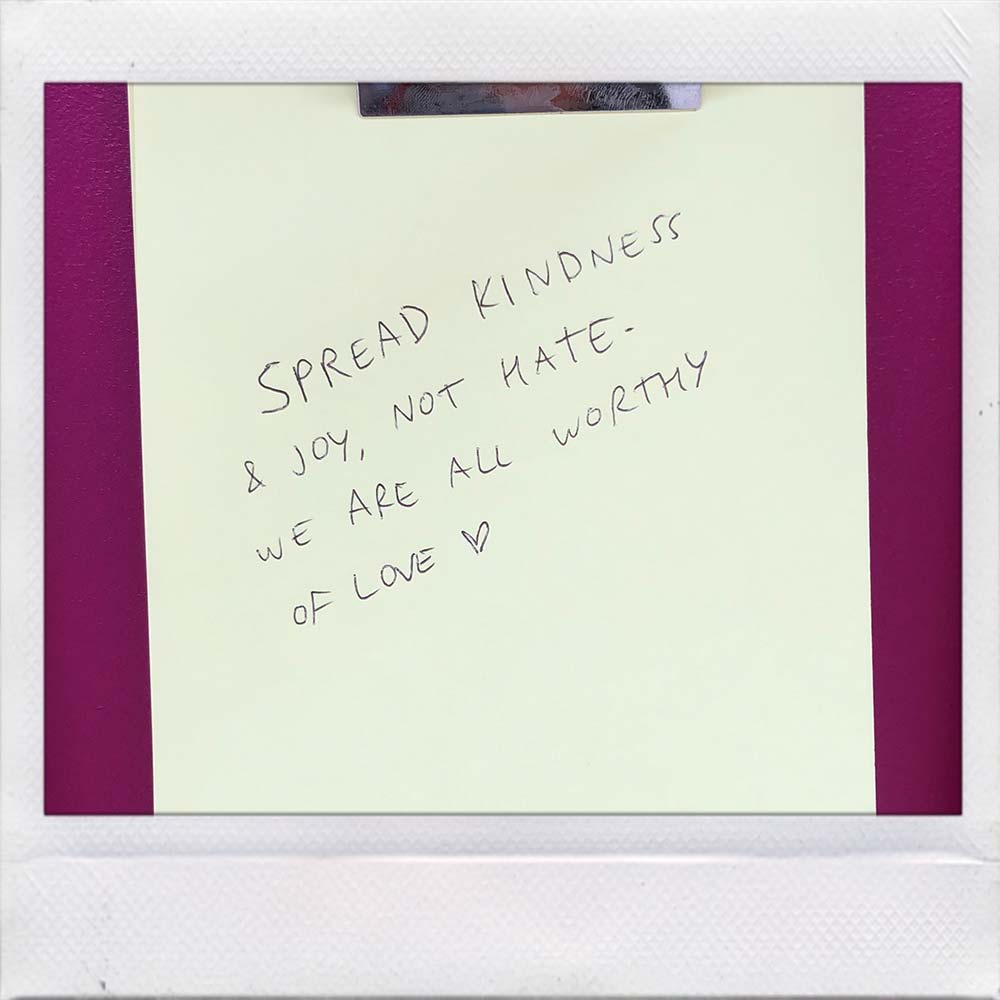 SPREAD KINDNESS
& JOY, NOT HATE.
WE ARE ALL WORTHY
OF LOVE ♡